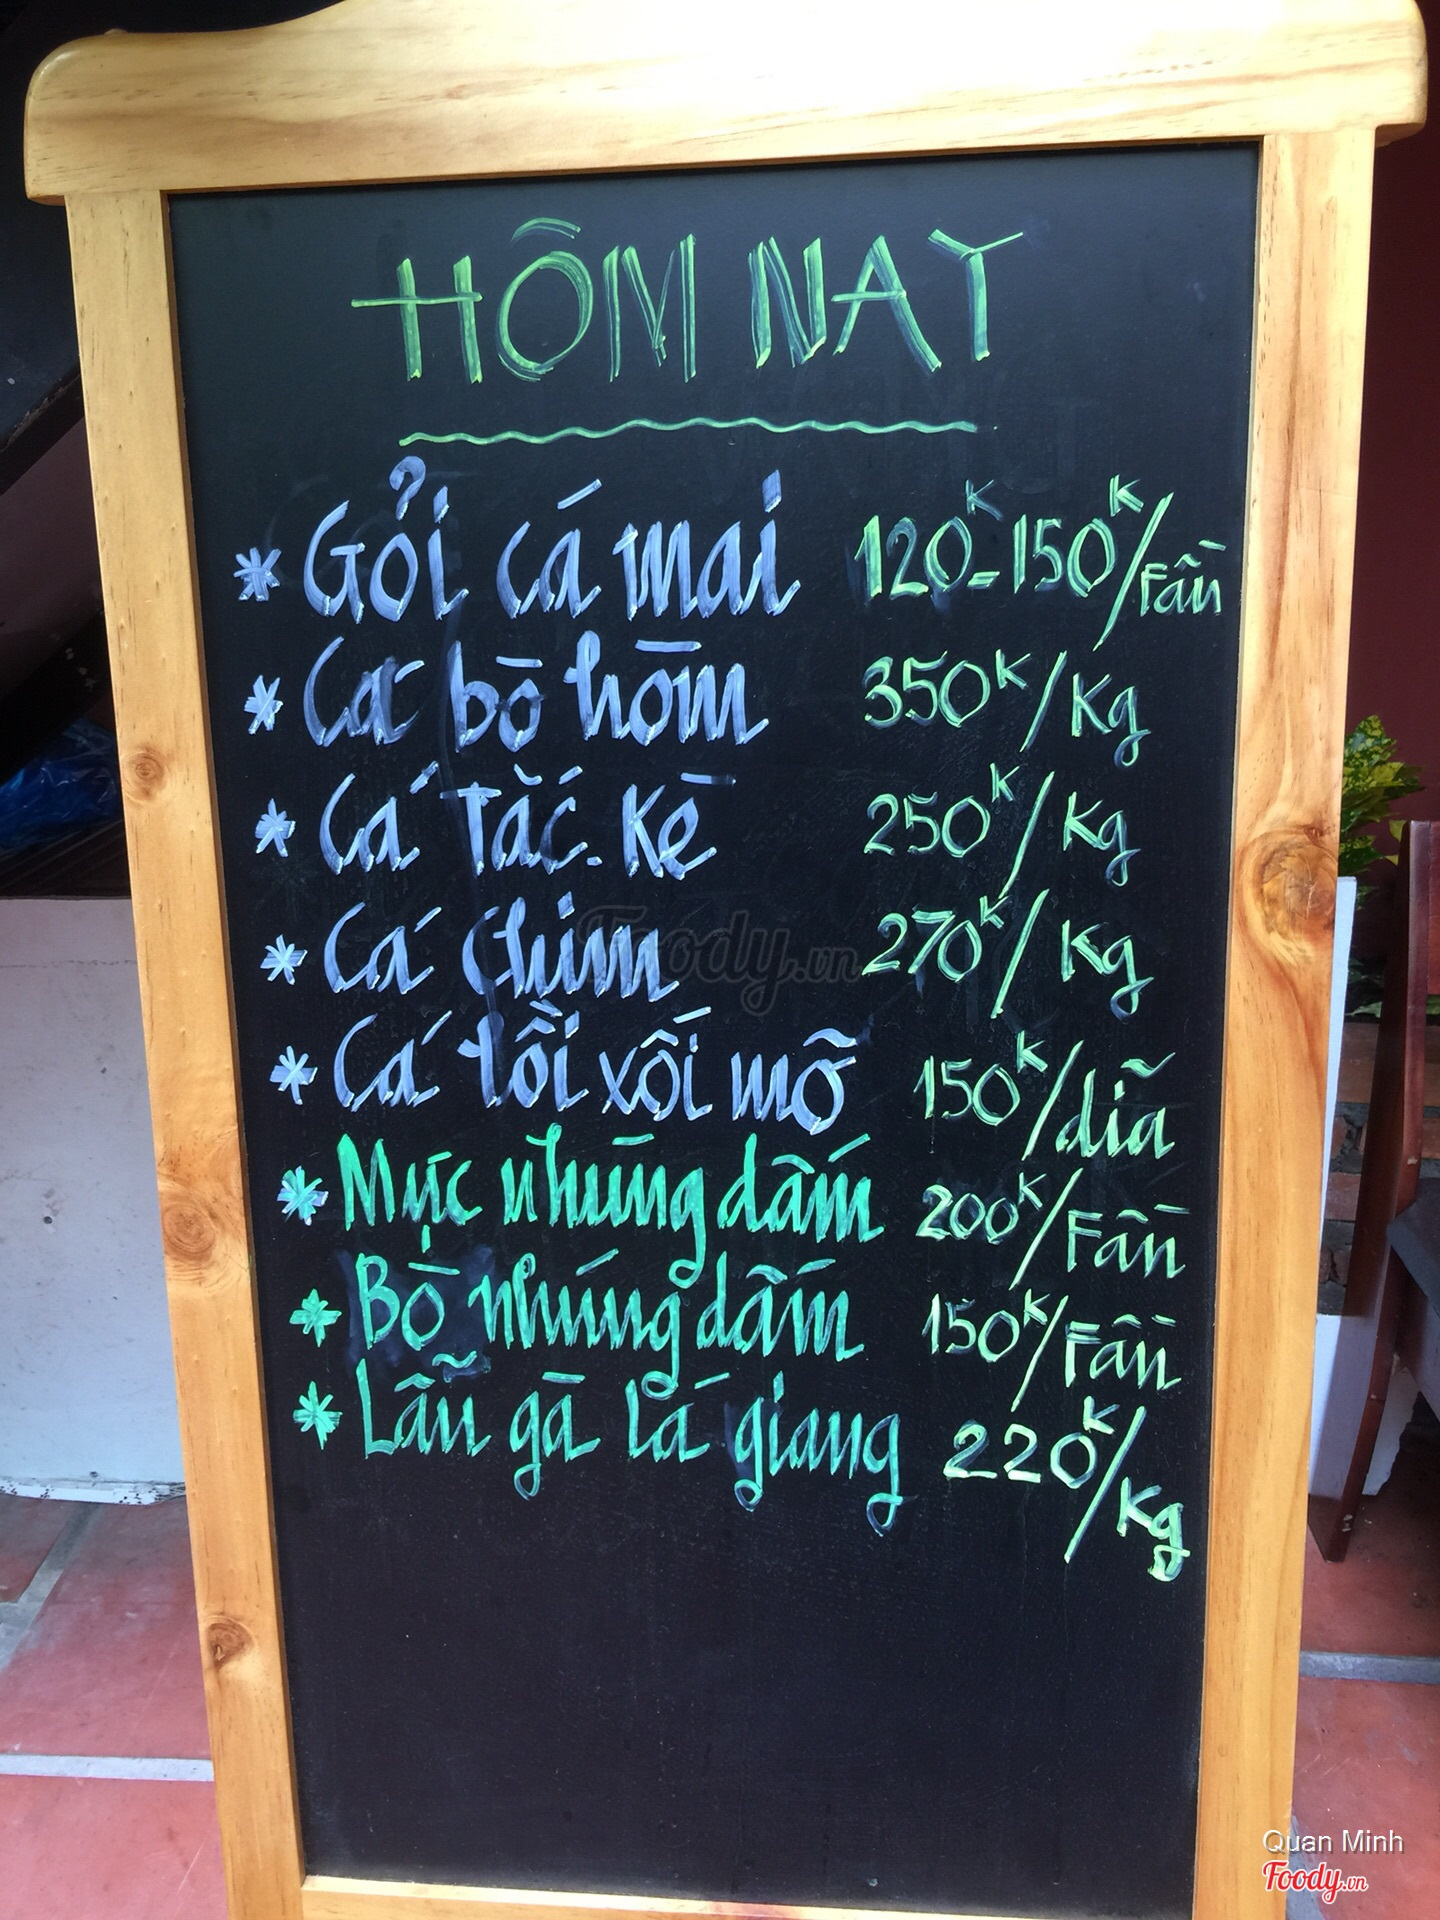 HÔM NAY
* Gỏi cá mai 120K-150K/Fần
* Cá bò hòm 350K/Kg
* Cá Tắc Kè 250K/Kg
* Cá chim 270K/Kg
* Cá lồi xối mỡ 150K/dĩa
* Mực nhúng dấm 200K/Fần
* Bò nhúng dấm 150K/Fần
* Lẫu gà lá giang 220K/Kg
Foody.vn
Quan Minh
Foody.vn